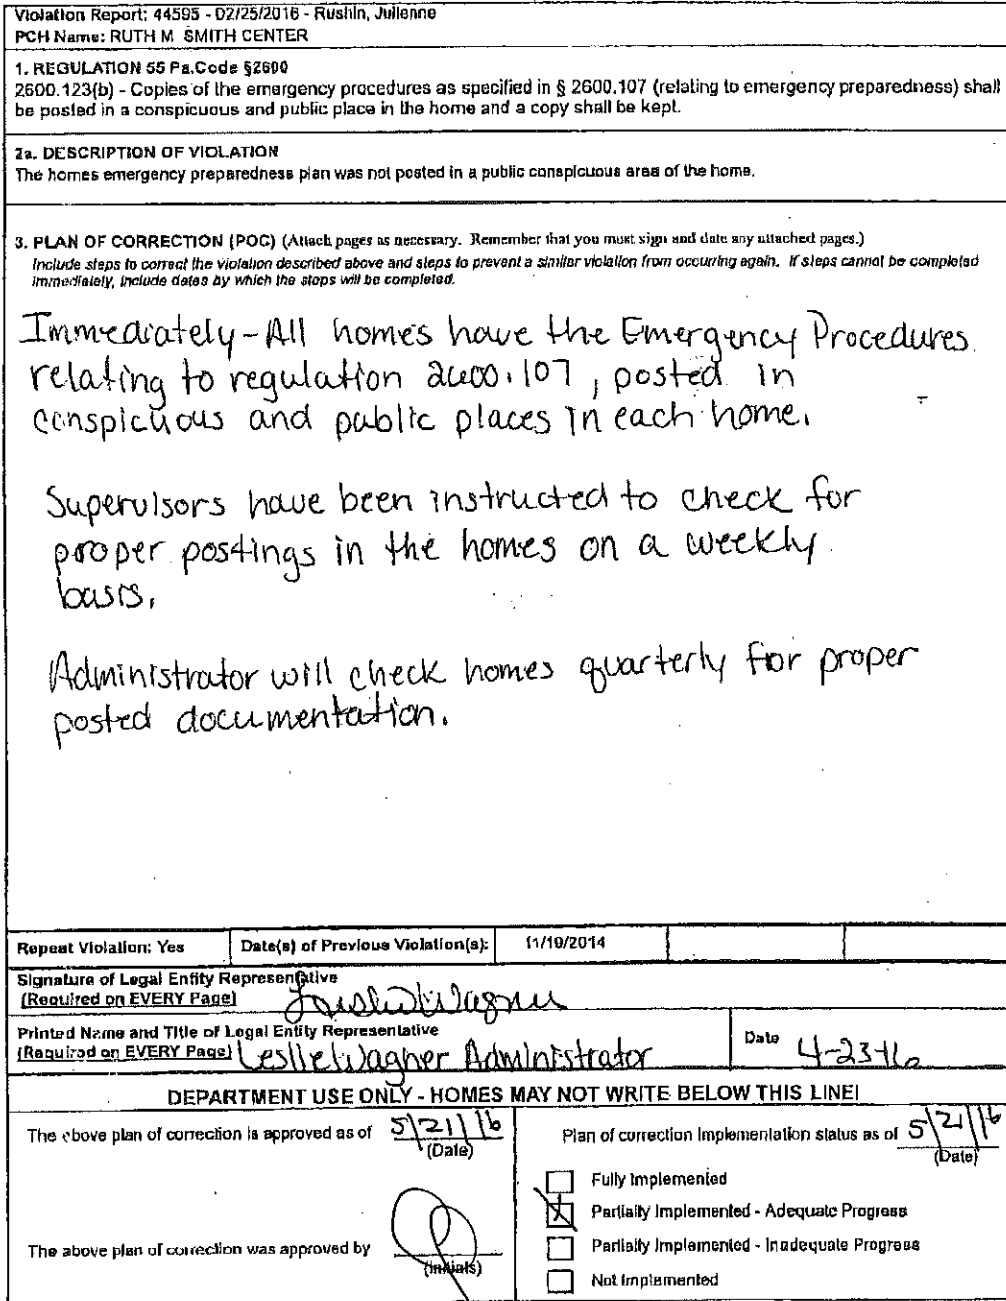 Violation Report: 44595 - 02/25/2016 - Rushin, Julienne
PCH Name: RUTH M SMITH CENTER
1. REGULATION 55 Pa.Code §2600
2600.123(b) - Copies of the emergency procedures as specified in § 2600.107 (relating to emergency preparedness) shall
be posted in a conspicuous and public place in the home and a copy shall be kept.
2a. DESCRIPTION OF VIOLATION
The homes emergency preparedness plan was not posted in a public conspicuous area of the home.
3. PLAN OF CORRECTION (POC) (Attach pages as necessary. Remember that you must sign and date any attached pages.)
Include steps to correct the violation described above and steps to prevent a similar violation from occurring again. If steps cannot be completed
immediately, include dates by which the steps will be completed.
Immediately - All homes have the Emergency Procedures
relating to regulation 2600.107, posted in
conspicuous and public places in each home.
Supervisors have been instructed to check for
proper postings in the homes on a weekly
basis.
Administrator will check homes quarterly for proper
posted documentation.
Repeat Violation: Yes Date(s) of Previous Violation(s): 11/10/2014
Signature of Legal Entity Representative
(Required on EVERY Page) Leslie Wagner
Printed Name and Title of Legal Entity Representative
(Required on EVERY Page) Leslie Wagner Administrator Date 4-23-16
DEPARTMENT USE ONLY - HOMES MAY NOT WRITE BELOW THIS LINE!
The above plan of correction is approved as of 5/21/16
(Date)
Plan of correction implementation status as of 5/21/16
(Date)
Fully Implemented
X Partially Implemented - Adequate Progress
Partially Implemented - Inadequate Progress
Not Implemented
The above plan of correction was approved by
(Initials)